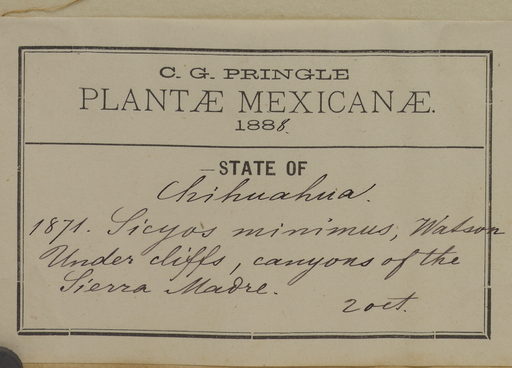 C. G. PRINGLE
PLANTÆ MEXICANÆ.
1888.
STATE OF
Chihuahua.
1871. Sicyos minimus, Watson
Under cliffs, canyons of the
Sierra Madre.
2 oct.